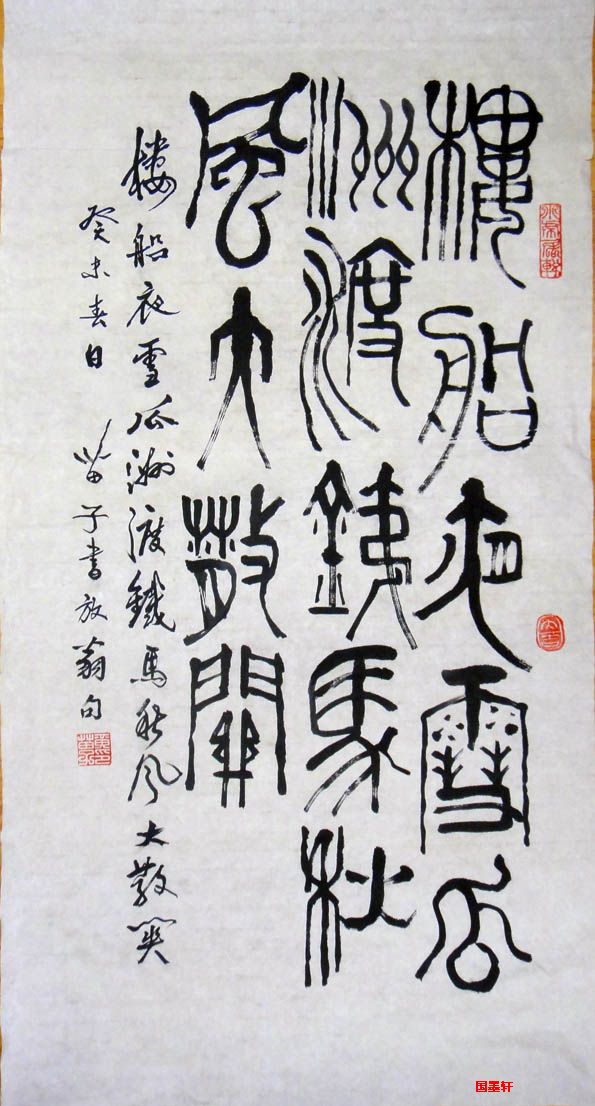 樓船夜雪瓜
洲渡鐵馬秋
風大散關
樓船夜雪瓜洲渡鐵馬秋风大散關
癸未春日 苗子書放翁句
国墨轩